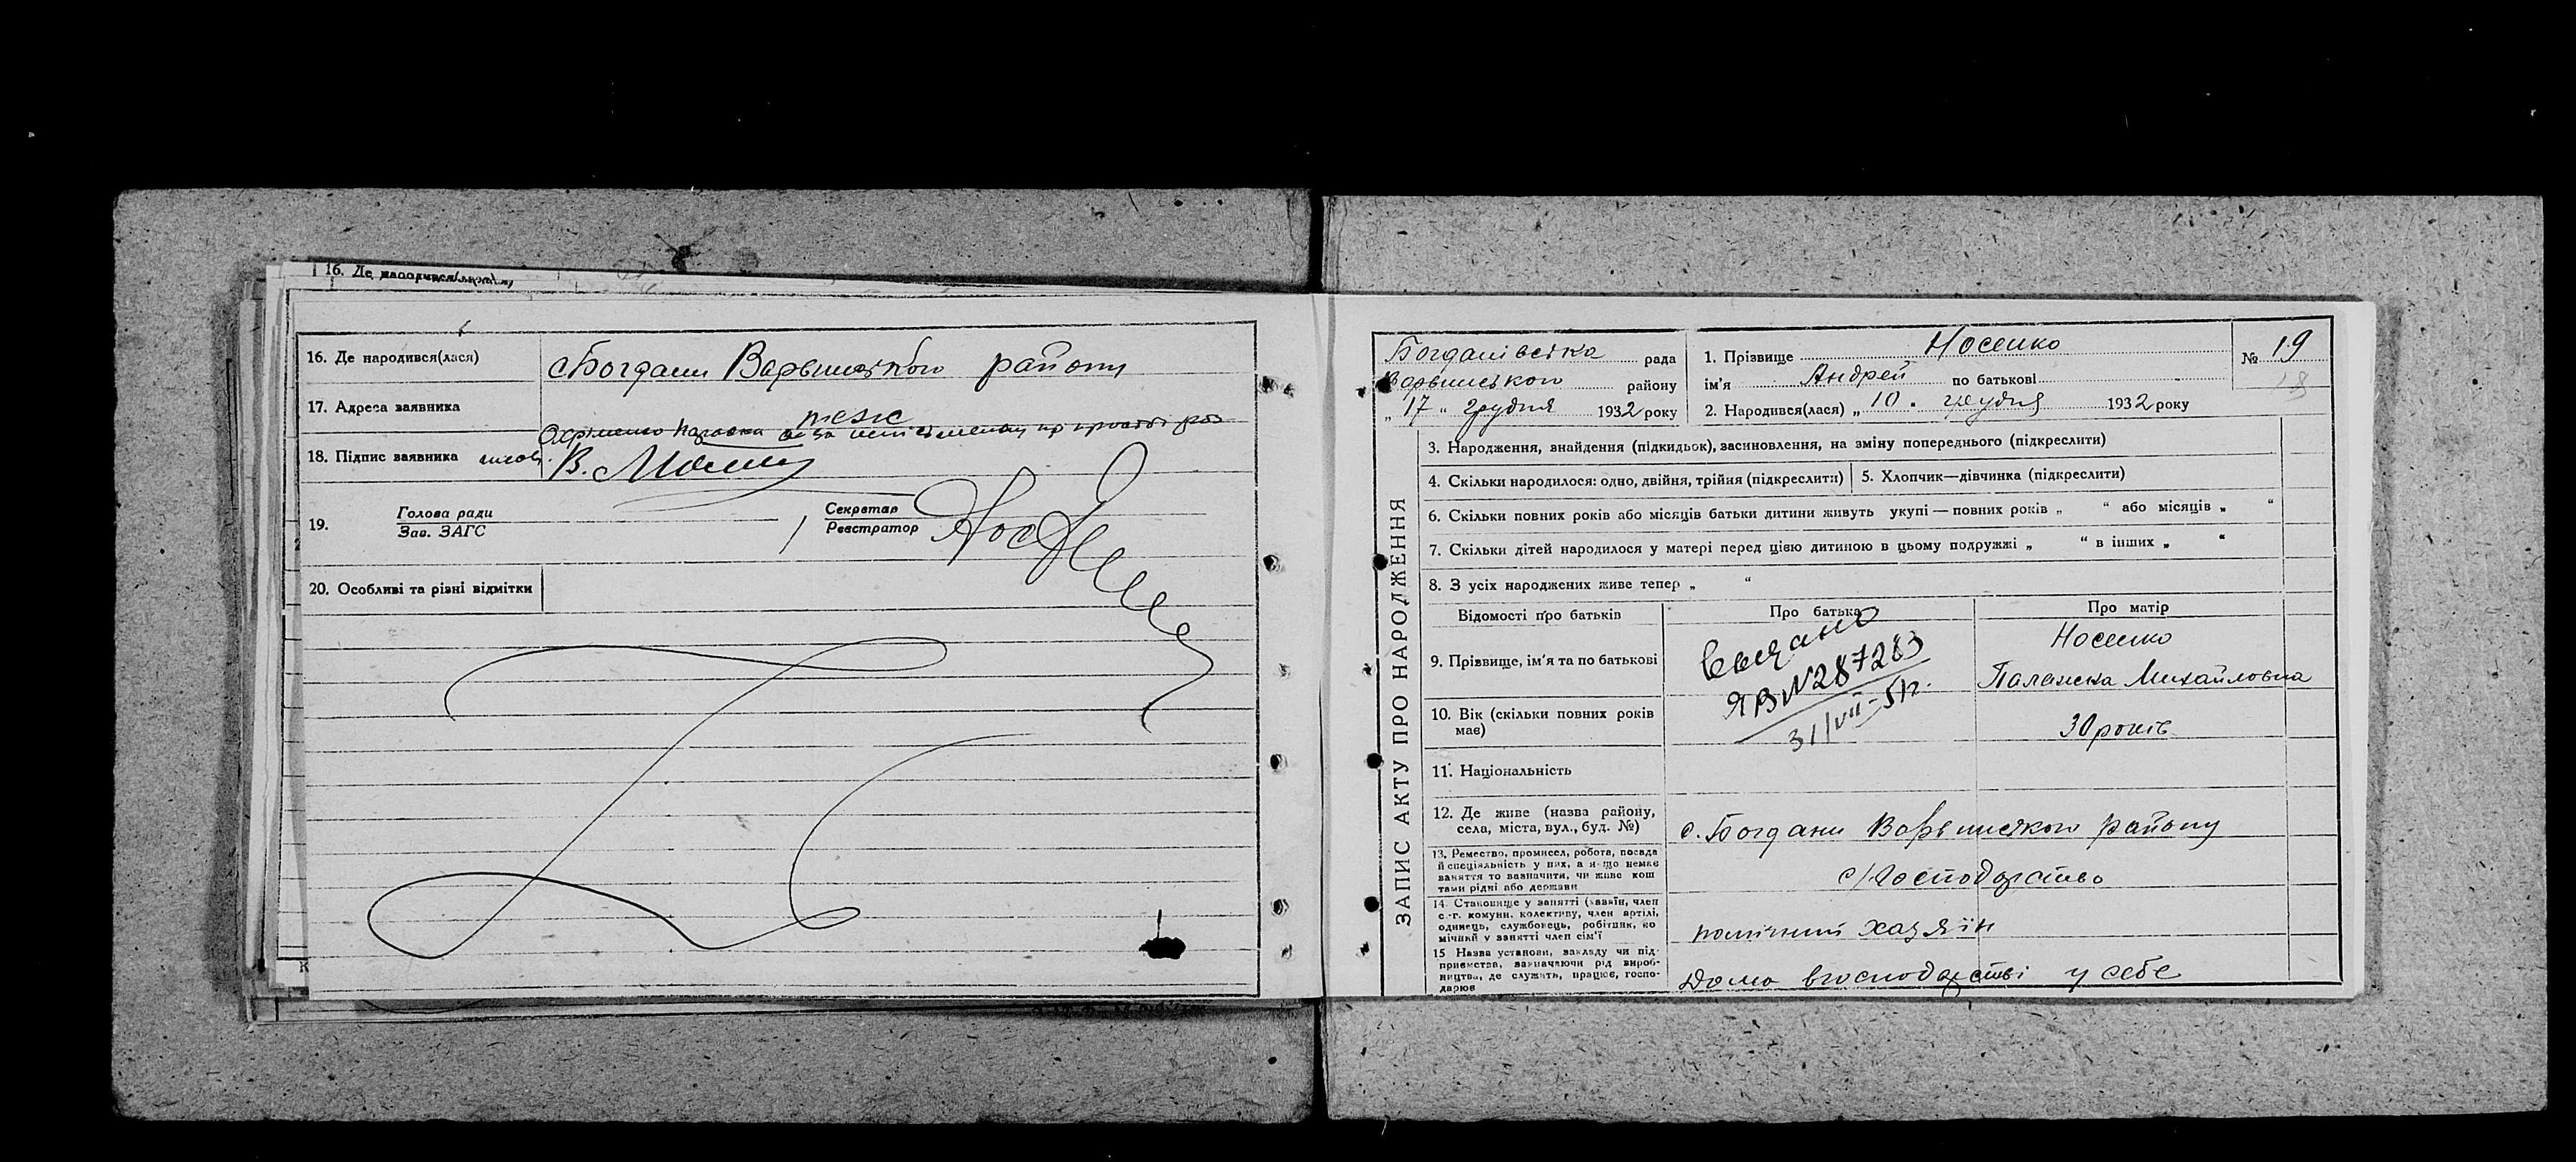 16. Де народився(лася)
16. Де народився(лася) с Богдани Варвинського району
17. Адреса заявника теж
за неписьменну по проханні роз
18. Підпис заявника В.
19. Голова ради
Зав. ЗАГС
Секретар
Реєстратор
20. Особливі та різні відмітки
ЗАПИС АКТУ ПРО НАРОДЖЕННЯ
Богданівська рада
Варвинського району
„ 17 “ грудня 1932 року
1. Прізвище Носенко
ім'я Андрей по батькові
2. Народився(лася) „ 10 “ грудня 1932 року
№ 19
18
3. Народження, знайдення (підкидьок), засиновлення, на зміну попереднього (підкреслити)
4. Скільки народилося: одно, двійня, трійня (підкреслити) 5. Хлопчик—дівчинка (підкреслити)
6. Скільки повних років або місяців батьки дитини живуть укупі — повних років „ “ або місяців „ “
7. Скільки дітей народилося у матері перед цією дитиною в цьому подружжі „ “ в інших „ “
8. З усіх народжених живе тепер „ “
Відомості про батьків Про батька Про матір
9. Прізвище, ім'я та по батькові
выдано
ЯВ N 287283
31/VII-51г.
Носенко
Палажка Михайловна
10. Вік (скільки повних років
має)
30 років
11. Національність
12. Де живе (назва району,
села, міста, вул., буд. №)
с. Богдани Варвинського району
13. Ремество, промисел, робота, посада
й спеціяльність у них, а якщо немає
заняття то зазначити, чи живе кош
тами рідні або держави
с/господарство
14. Становище у занятті (хазяїн, член
с.-г. комуни, колективу, член артілі,
одинець, службовець, робітник, по
мічний у занятті член сім'ї
помічний хазяїн
15 Назва установи, закладу чи під-
приємства, зазначаючи рід вироб-
ництва, де служить, працює, госпо-
дарює
Дома в господарстві у себе